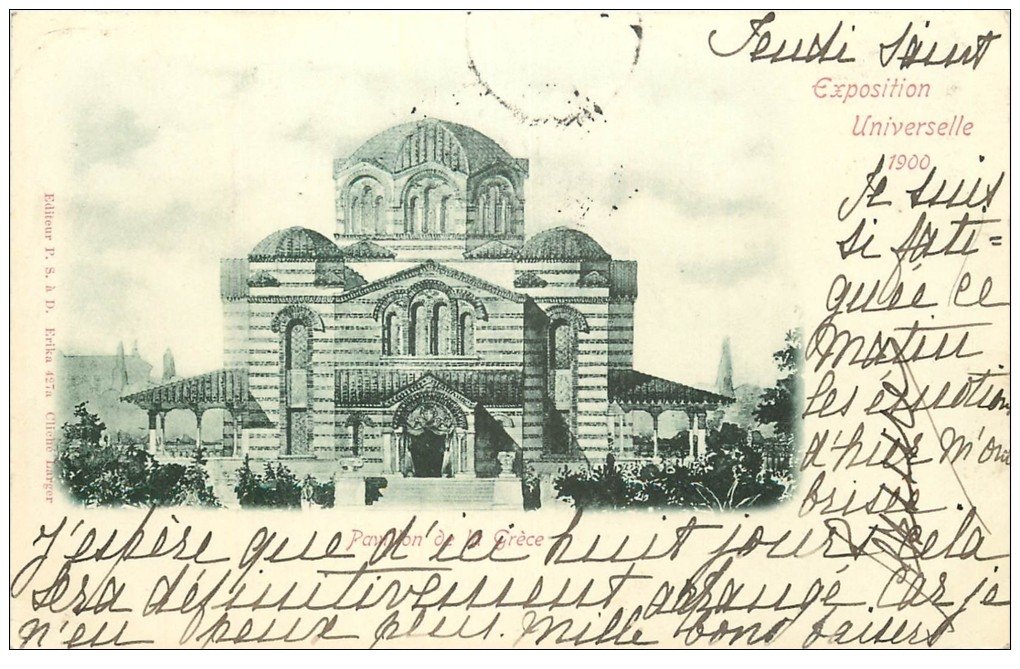 Jeudi Saint
Exposition
Universelle
1900
Je suis
si fati=
guée ce
Matin
Les émotions
d'hier m'ont
brisée
Editeur P. S. à D. Erika 427a Cliché Larger
Pavillon de la Grèce
J'espère que d'ici huit jours cela
sera définitivement arrangé car je
n'en peux plus. Mille bons baisers